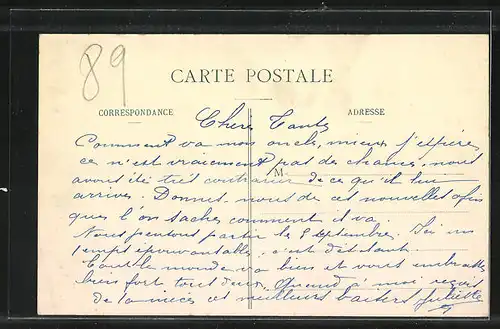 89
CARTE POSTALE
CORRESPONDANCE
ADRESSE
M
Chere Tante
Comment va mon oncle, mieux j'espère
ce n'est vraiment pas de chance, nous
avons été très contrarier de ce qu'il lui
arrive. Donnez nous de ces nouvelles afin
que l'on saches comment il va.
Nous pensons partir le 8 septembre. Ici un
temps épouvantable, c'est
Tout le monde va bien et vous embrasse
bien fort tous deux. Quand à moi reçois
de ta nièce ses meilleurs baisers Juliette